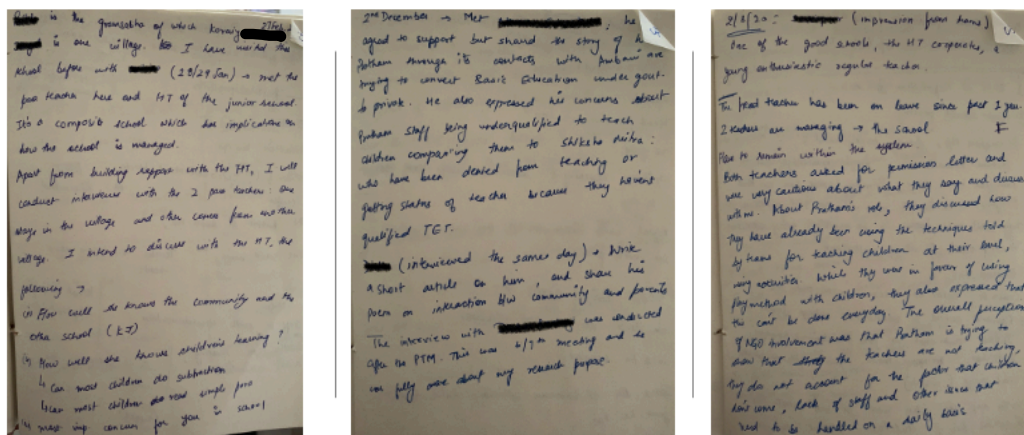 is the gramsabha of which
is one village. I have visited the
school before with (28/29 Jan) → met the
para teacher here and HT of the junior school.
It's a composite school which has implications on
how the school is managed.
Apart from building rapport with the HT, I will
conduct interviews with the 2 para teachers: one
stays in the village and other comes from another
village. I intend to discuss with the HT, the
following →
(i) How well she knows the community and the
other school (KJ)
(ii) How well she knows children's learning?
↳ Can most children do subtraction
↳ Can most children do read simple para
most imp concern for you in school
2nd December → Met ; he
agreed to support but shared the story of
Pratham through its contacts with are
trying to convert Basic Education under govt
to private. He also expressed his concerns about
Pratham staff being underqualified to teach
children comparing them to Shiksha Mitra:
who have been denied from teaching or
getting status of teacher because they haven't
qualified TET.
(interviewed the same day) → Write
a short article on him, and share his
poem on interaction b/w community and parents
The interview with was conducted
after the PTM. This was 6/7th meeting and
fully aware about my research purpose.
2/1/20: (impression from hams)
One of the good schools, the HT cooperates, a
young enthusiastic regular teacher.
The head teacher has been on leave since past 1 year.
2 teachers are managing → the school
to remain within the system.
Both teachers asked for permission letter and
were very cautious about what they say and discuss
with me. About Pratham's role, they discussed how
they have already been using the techniques told
by trams for teaching children at their level,
using activities. While they were in favour of using
play method with children, they also expressed that
this can't be done everyday. The overall perception
of NGO involvement was that Pratham is trying to
show that the teachers are not teaching,
they do not account for the factor that children
don't come, lack of staff and other issues that
need to be handled on a daily basis